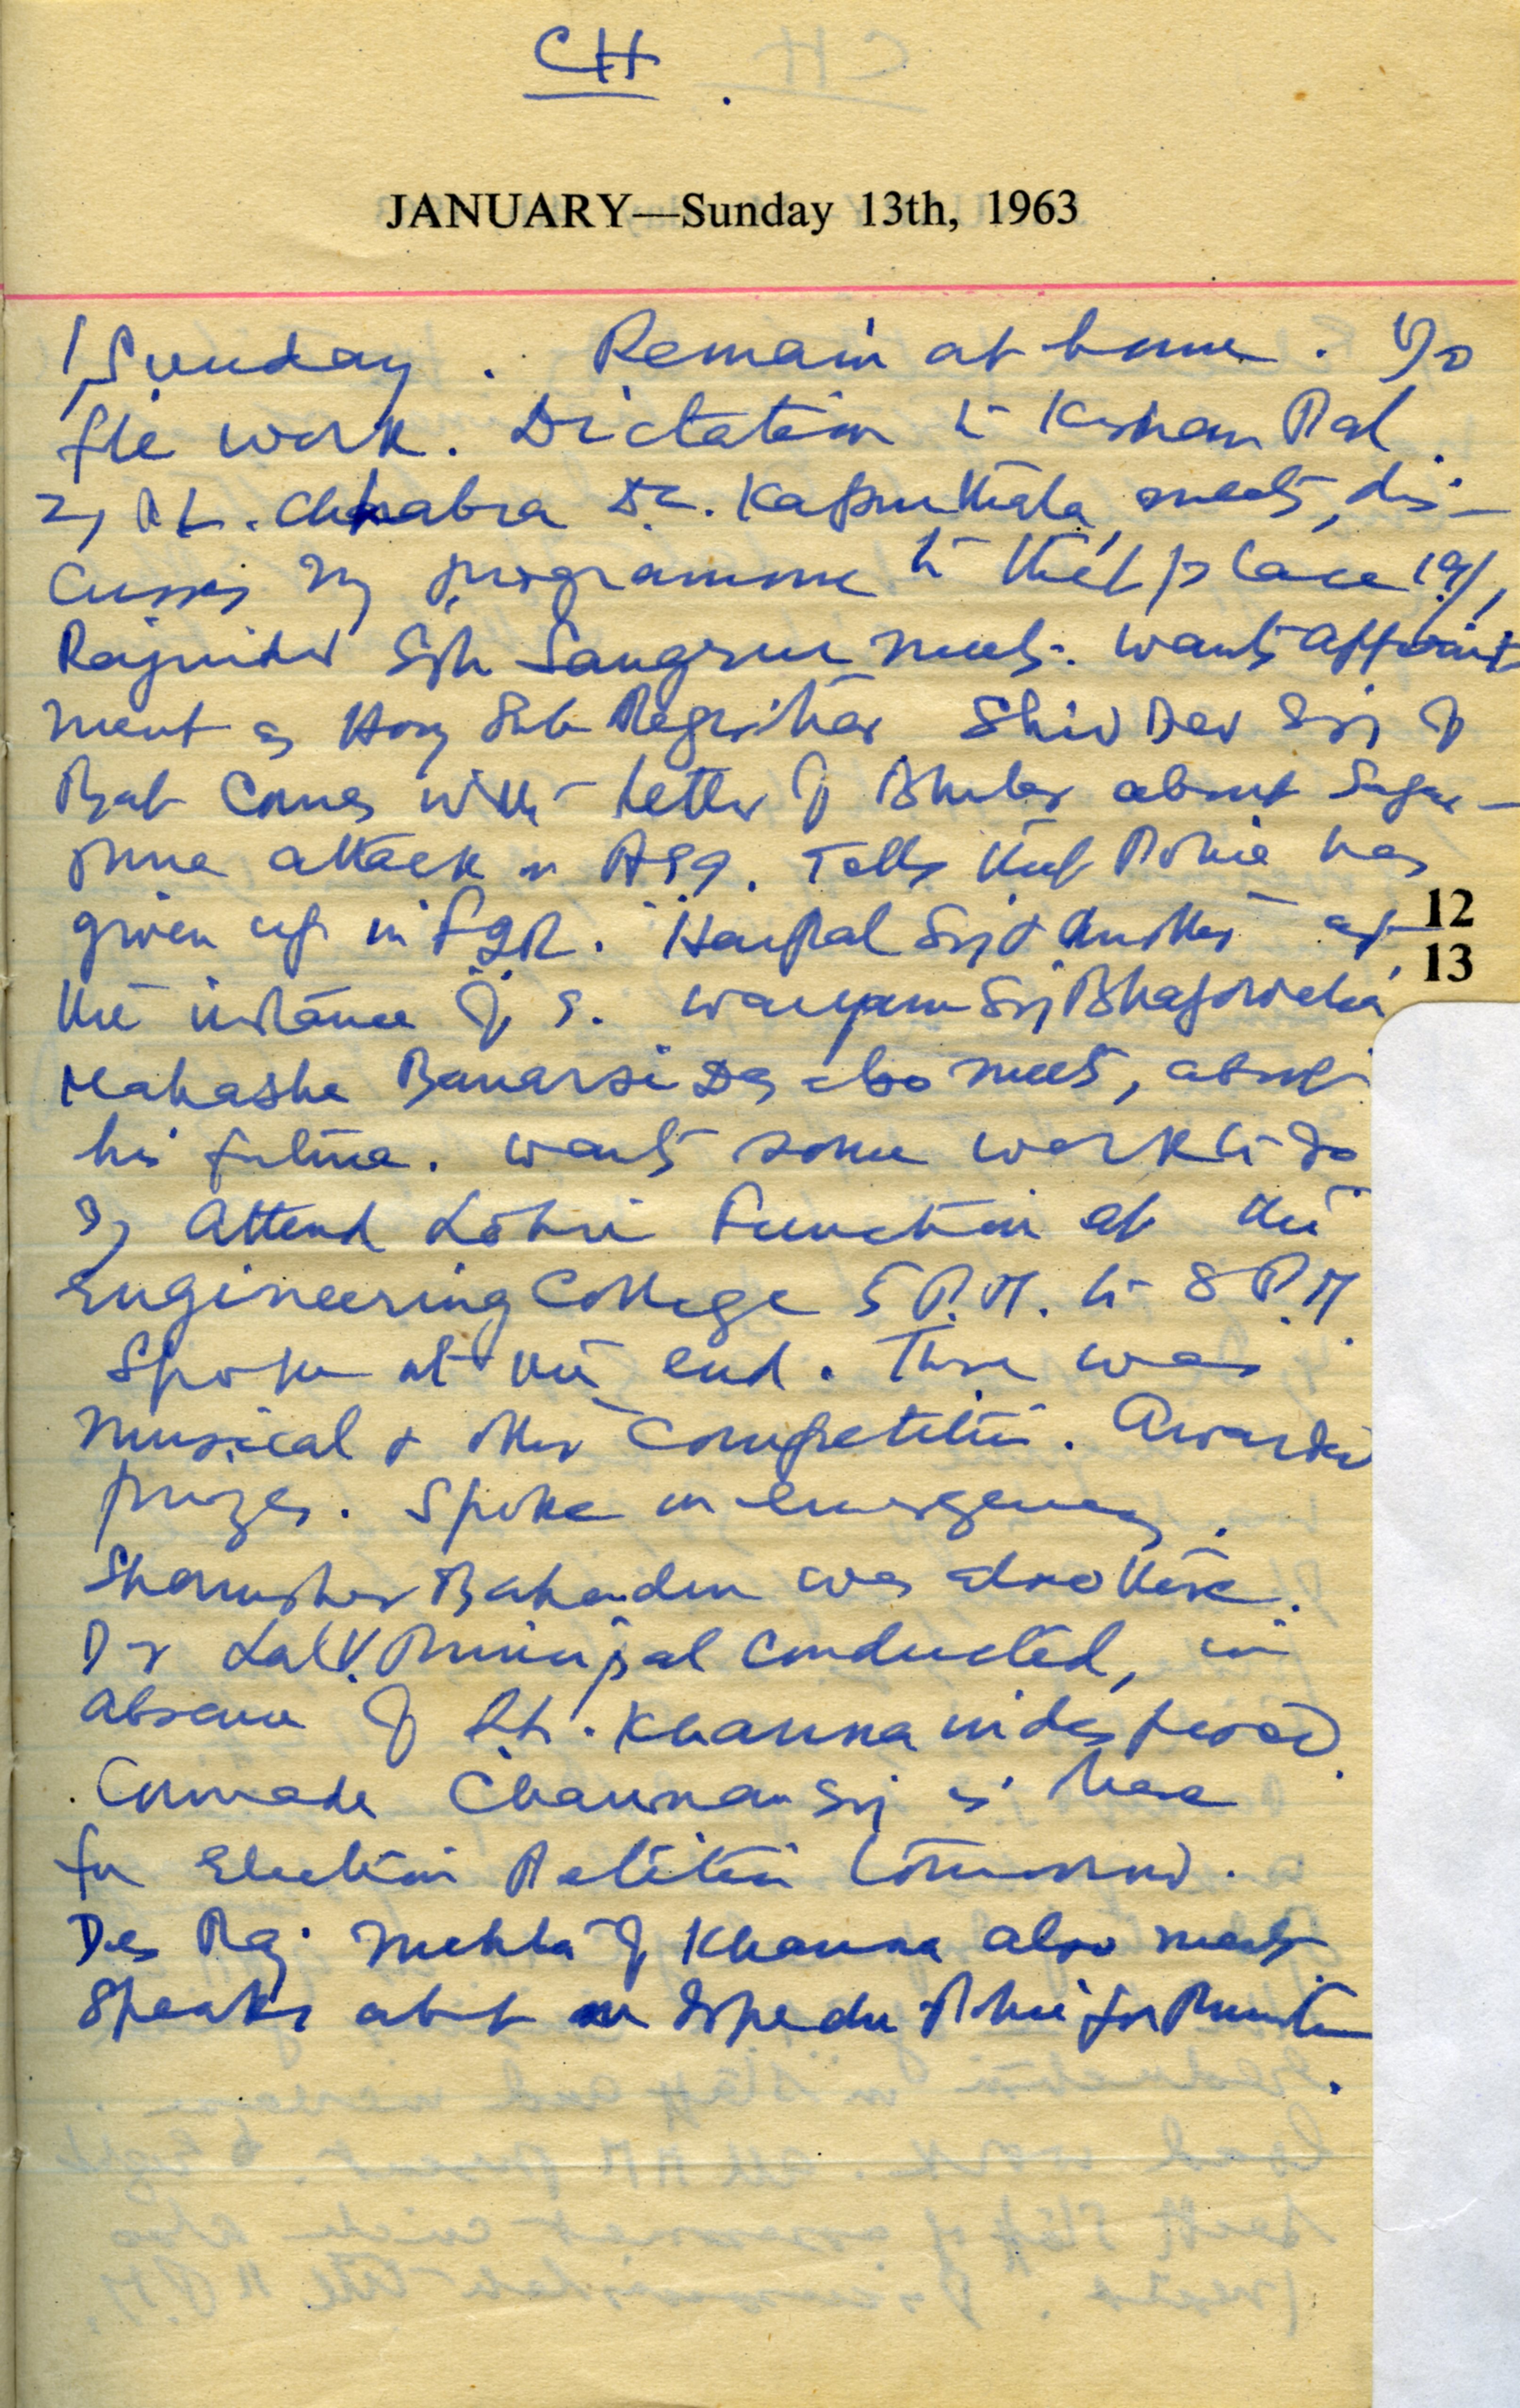 CH
JANUARY—Sunday 13th, 1963
1, Sunday. Remain at home. Do
file work. Dictation to Kishan Pal.
2, R L. Chhabra D.C. Kapurthala, meets, dis-
cusses my programme to that place 19/1,
Rajinder Sgh Sangrur meets. wants appoint
ment as Hony Sub Registrar Shiv Dev Sij of
comes with letter of about
attack on Tells that Police has
given up in Harpal Sij & Another at
12
13
the instance of S. Waryam Sij Bhagowalia
Mahasha Banarsi Das also meets, about
his future. wants some work to do
3, Attend Lohri Function at the
Engineering College 5 P.M. to 8 P.M.
Spoke at the end. There was
musical & other competition. Awarded
prizes. Spoke on emergency.
Shamsher Bahadur was also there.
Dr Lall V. Principal conducted, in
absence of R L. Khanna indisposed.
Comrade Chanan Sij is here
for Election Petition tomorrow.
Des Raj Mehta of Khanna also meets
Speaks about